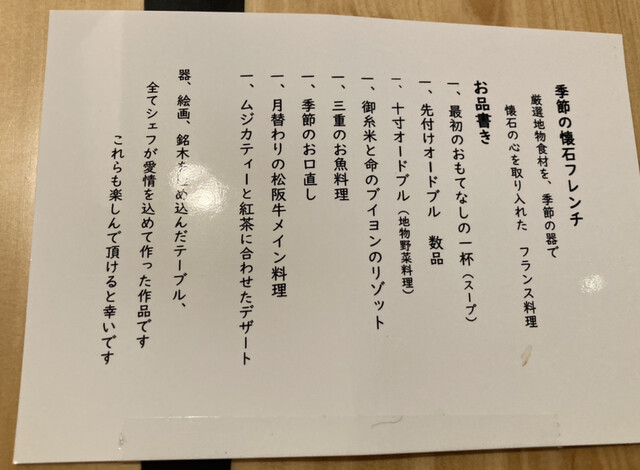 季節の懐石フレンチ
厳選地物食材を、季節の器で
懐石の心を取り入れた フランス料理
お品書き
一、最初のおもてなしの一杯(スープ)
一、先付けオードブル 数品
一、十寸オードブル(地物野菜料理)
一、御糸米と命のブイヨンのリゾット
一、三重のお魚料理
一、季節のお口直し
一、月替わりの松阪牛メイン料理
一、ムジカティーと紅茶に合わせたデザート
器、絵画、銘木を 込んだテーブル、
全てシェフが愛情を込めて作った作品です
これらも楽しんで頂けると幸いです